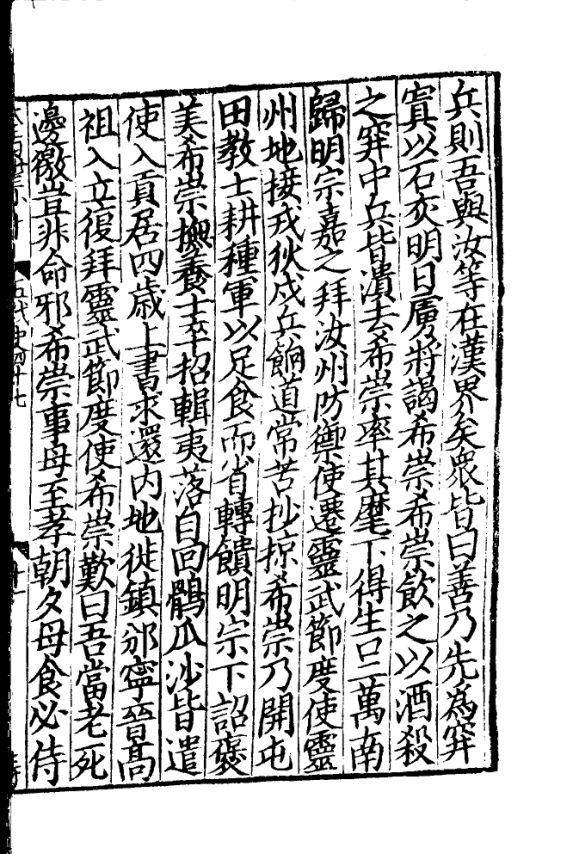 兵則吾與汝等在漢界矣衆皆曰善乃先爲穽
寘以石灰明日虜將謁希崇希崇飲之以酒殺
之穽中兵皆潰去希崇率其麾下得生口二萬南
歸明宗嘉之拜汝州防禦使遷靈武節度使靈
州地接戎狄戍兵餉道常苦抄掠希崇乃開屯
田教士耕種軍以足食而省轉饋明宗下詔褒
美希崇撫養士卒招輯夷落自回鶻瓜沙皆遣
使入貢居四歲上書求還内地徙鎮邠寧晉高
祖入立復拜靈武節度使希崇歎曰吾當老死
邊徼豈非命邪希崇事母至孝朝夕母食必侍
五代史四十七